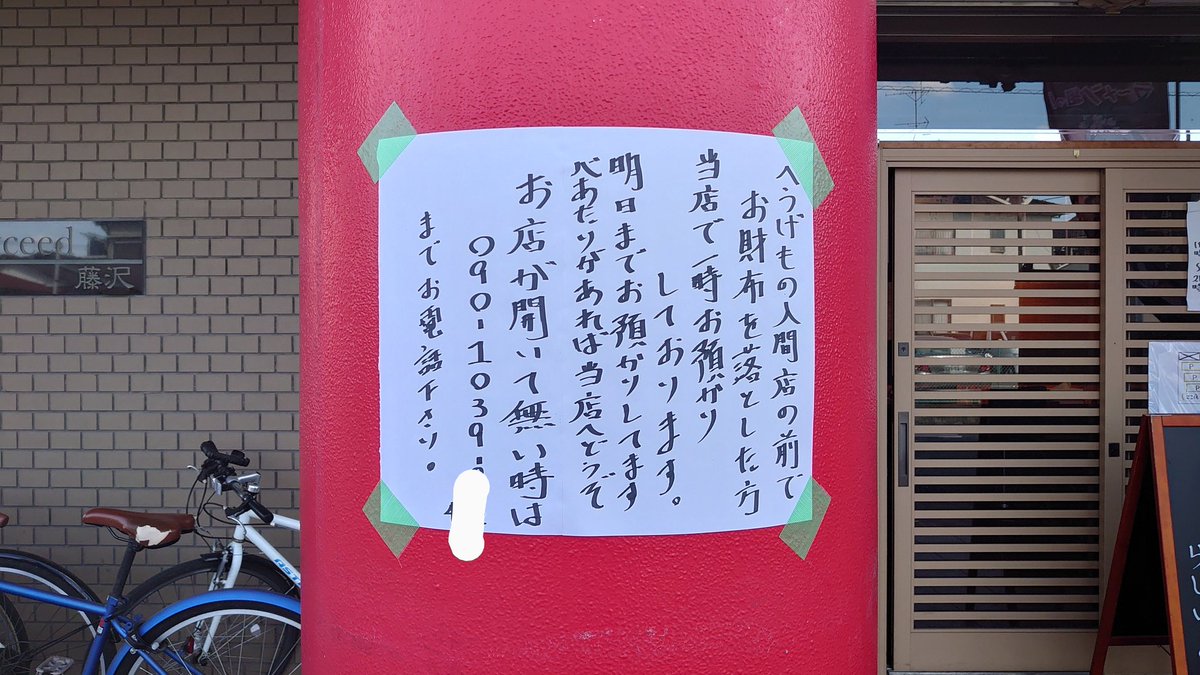 ceed
藤沢
へうげもの入間店の前で
お財布を落とした方
当店で一時お預かり
しております。
明日までお預かりしてます
心あたりがあれば当店へどうぞ
お店が開いて無い時は
090-1039-
までお電話下さい。